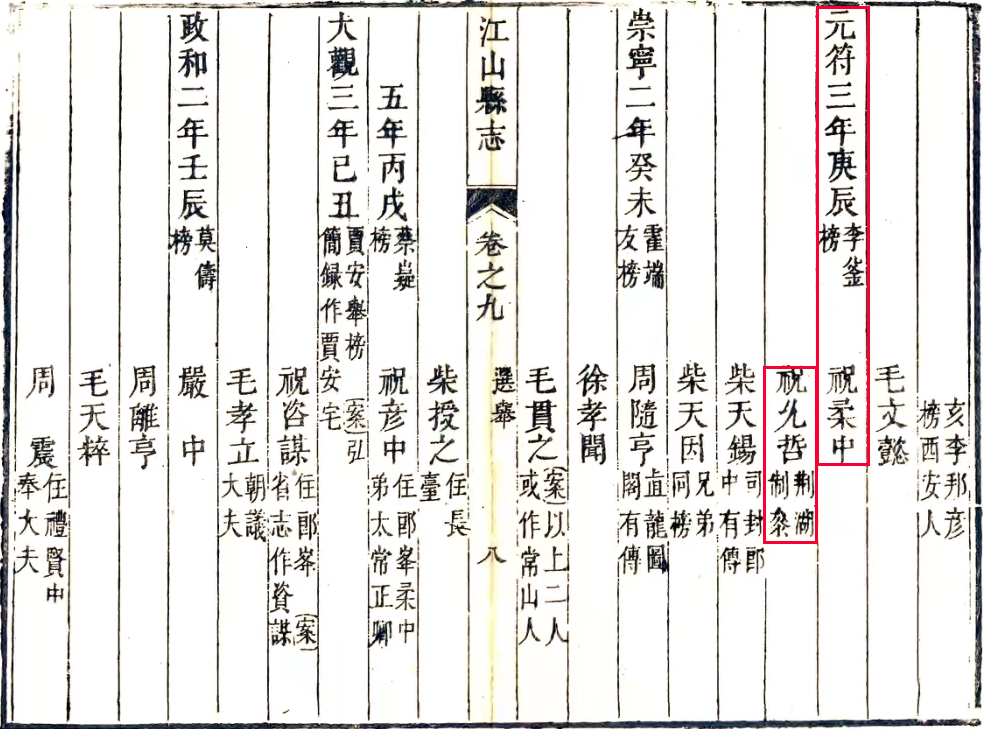 亥李邦彥榜西安人
毛文懿
元符三年庚辰 李釜榜 祝柔中
祝允哲 荆湖制叅
柴天錫 司封郎中有傳
柴天因 兄弟同榜
崇寧二年癸未 霍端友榜 周隨亨 直龍圖閣有傳
徐孝聞
毛貫之 (案)以上二人或作常山人
江山縣志 卷之九 選舉 八
柴授之 住長臺
五年丙戌 蔡嶷榜 祝彥中 住郎峯柔中弟太常正卿
大觀三年已丑 賈安舉榜(案)弘簡録作賈安宅
祝咨謀 住郎峯(案)省志作資謀
毛孝立 朝議大夫
政和二年壬辰 莫儔榜 嚴中
周離亨
毛天粹
周震 住禮賢中奉大夫